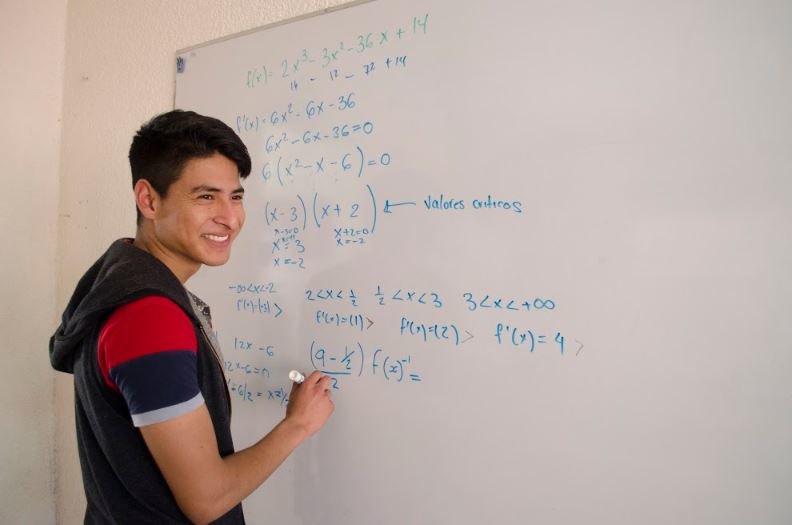 f(x) = 2x³ - 3x² - 36x + 14
f'(x) = 6x² - 6x - 36
6x² - 6x - 36 = 0
6(x² - x - 6) = 0
(x - 3)(x + 2) ← Valores criticos
x-3=0 x+2=0
x = 3 x=-2
x = -2
-∞<x<-2 2<x<½ ½<x<3 3<x<+∞
f'(x)=(-3)> f'(x)=(1)> f'(x)=(2)> f'(x)=4>
12x - 6
12x-6=0
(9 - ½)/2 f(x)⁻¹ =